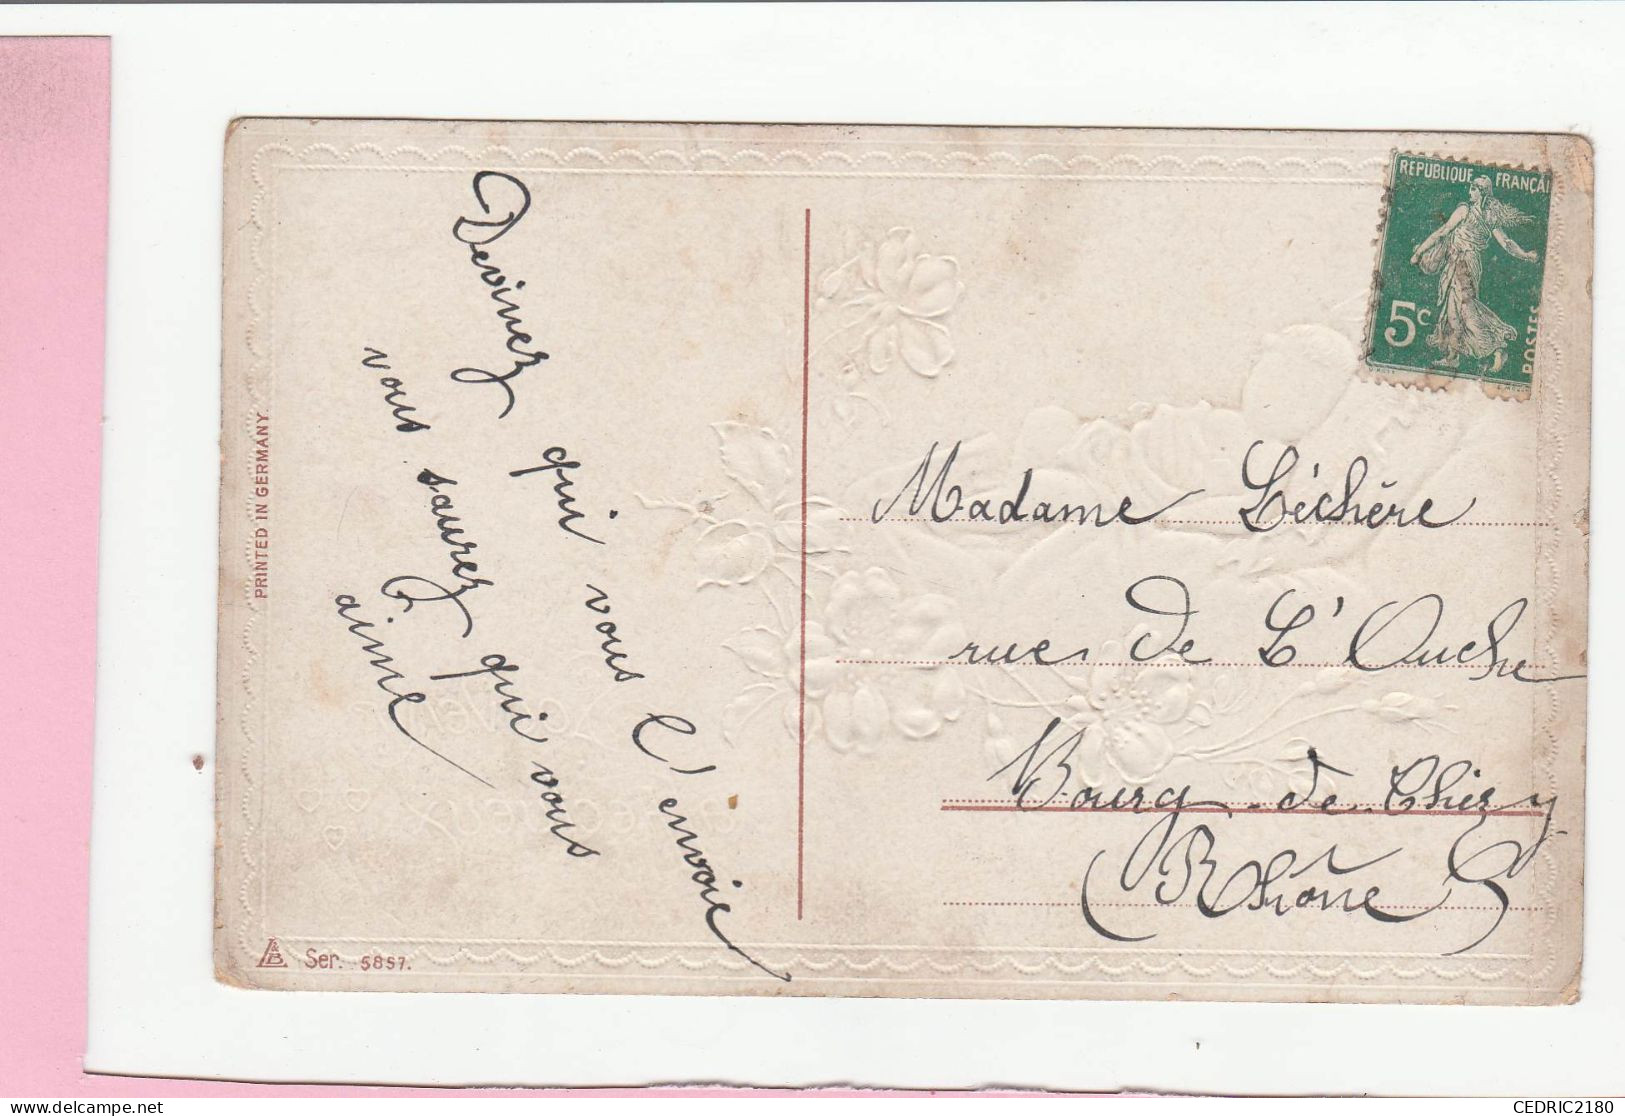 Devinez qui vous l'envoie
vous saurez qui vous
aime
Madame Léchère
rue de L'Ouche
Bourg-de-Thizy
(Rhône)
REPUBLIQUE FRANÇAI
5c
POSTES
PRINTED IN GERMANY.
L&B Ser. 5857.
CEDRIC2180